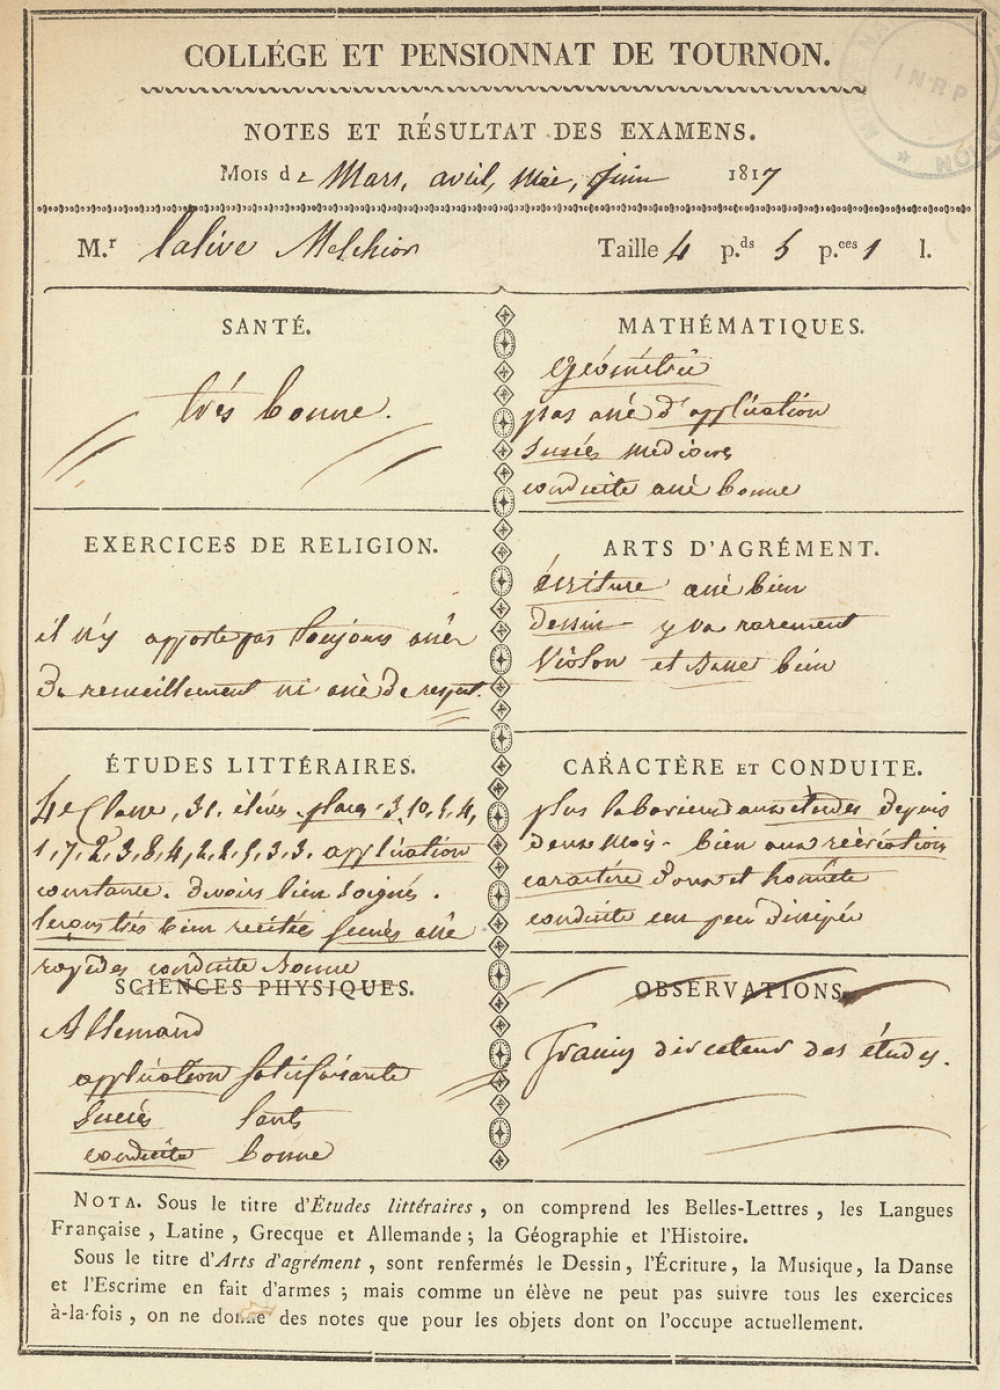 COLLÉGE ET PENSIONNAT DE TOURNON.
INRP
NOTES ET RÉSULTAT DES EXAMENS.
Mois de Mars, avril, Mai, Juin 1817
M.r Lalive Melchior Taille 4 p.ds 5 p.ces 1 l.
SANTÉ.
très bonne.
EXERCICES DE RELIGION.
il n'y apporte pas toujours assés
De recueillement ni assés De respect.
ÉTUDES LITTÉRAIRES.
4e Classe, 31. élèves places 3, 10, 5, 4,
1, 7, 2, 3, 8, 4, 2, 2, 5, 3, 3. application
constante. Devoirs bien soignés.
leçons très bien recitées succès assés
rapides conduite bonne
SCIENCES PHYSIQUES.
Allemand
application satisfaisante
Succès lents
conduite bonne
MATHÉMATIQUES.
Géométrie
pas assés d'application
Succès mediocres
conduite assés bonne
ARTS D'AGRÉMENT.
écriture assés bien
dessin - y va rarement
Violon et danse bien
CARACTÈRE ET CONDUITE.
plus laborieux aux études depuis
deux mois - bien aux récréations
caractère doux et honnête
conduite un peu dissipée
OBSERVATIONS.
directeur des études.
NOTA. Sous le titre d'Études littéraires, on comprend les Belles-Lettres, les Langues
Française, Latine, Grecque et Allemande; la Géographie et l'Histoire.
Sous le titre d'Arts d'agrément, sont renfermés le Dessin, l'Écriture, la Musique, la Danse
et l'Escrime en fait d'armes; mais comme un élève ne peut pas suivre tous les exercices
à-la-fois, on ne donne des notes que pour les objets dont on l'occupe actuellement.